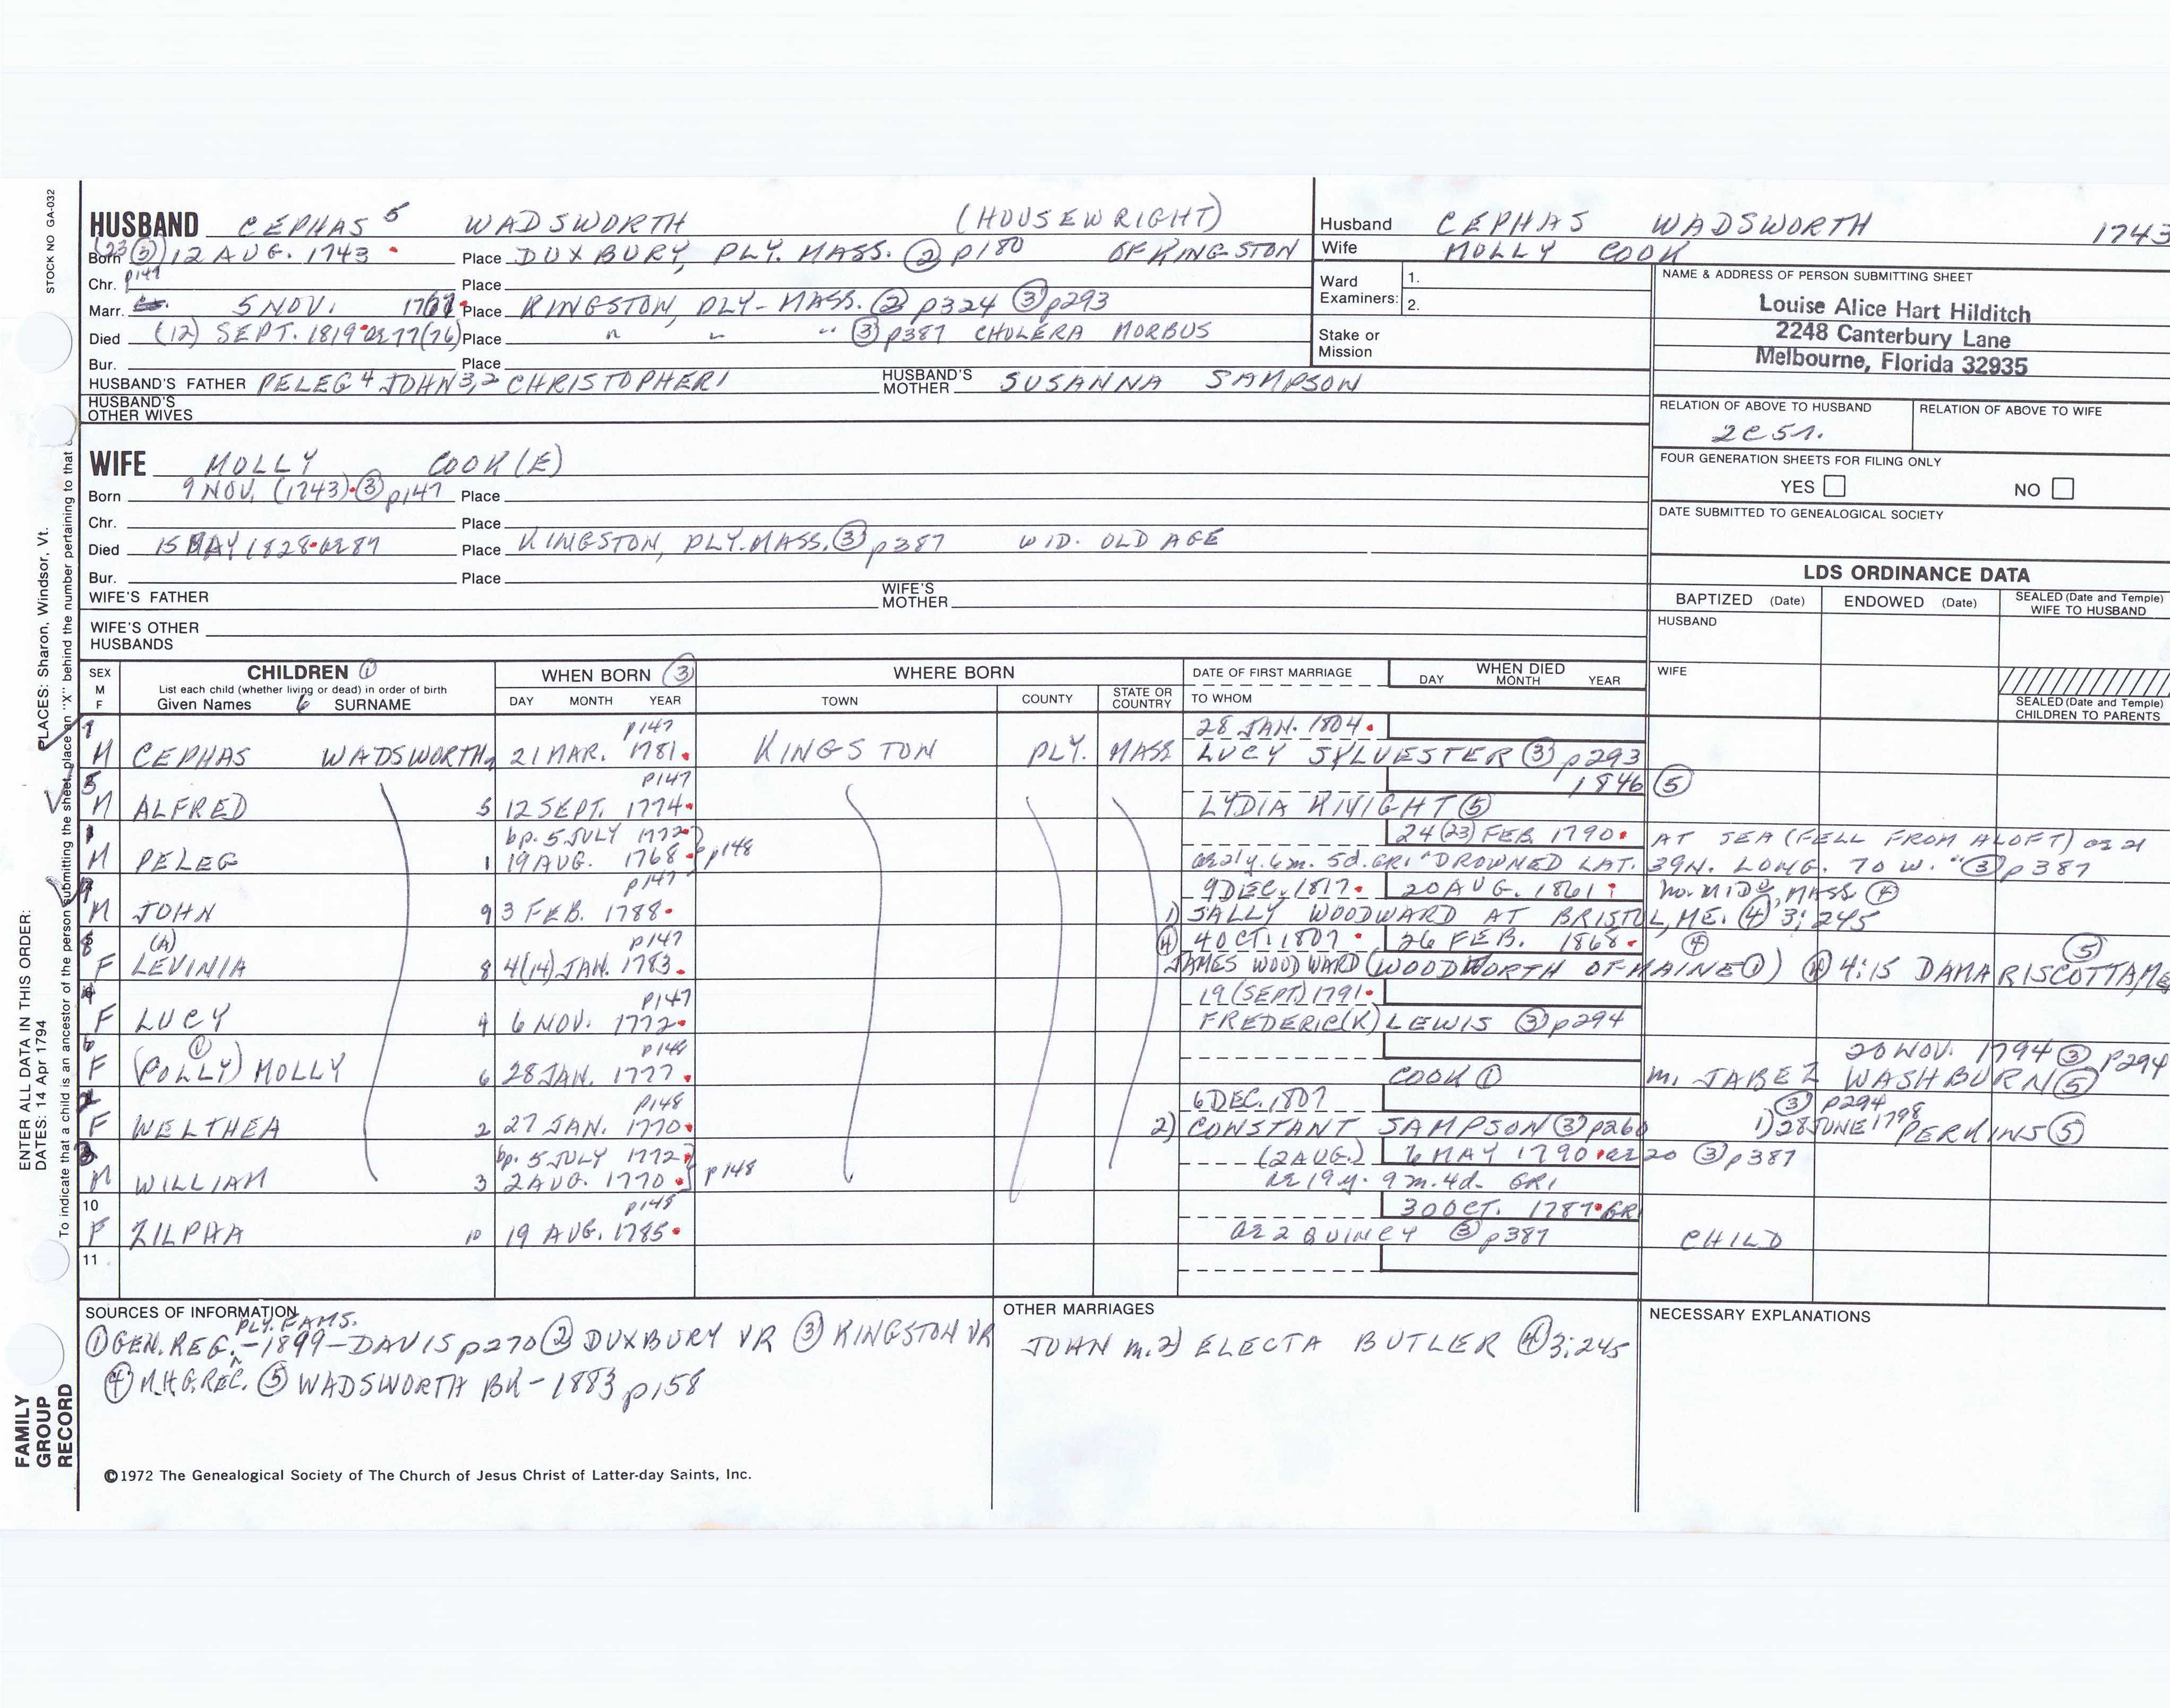 STOCK NO GA-032
PLACES: Sharon, Windsor, Vt.
ENTER ALL DATA IN THIS ORDER:
DATES: 14 Apr 1794
To indicate that a child is an ancestor of the person submitting the sheet, place an "X" behind the number pertaining to that
FAMILY GROUP RECORD
HUSBAND CEPHAS 5 WADSWORTH (HOUSEWRIGHT)
Born (23 ③) 12 AUG. 1743 Place DUXBURY, PLY. MASS. ② p180 OF KINGSTON
p147
Chr. Place
Marr. 5 NOV. 1767 Place KINGSTON, PLY-MASS. ② p324 ③ p293
Died (12) SEPT. 1819 ae 77(76) Place " " " ③ p387 CHOLERA MORBUS
Bur. Place
HUSBAND'S FATHER PELEG 4 JOHN 3,2 CHRISTOPHER 1 HUSBAND'S MOTHER SUSANNA SAMPSON
HUSBAND'S OTHER WIVES
WIFE MOLLY COOK(E)
Born 9 NOV. (1743) ③ p147 Place
Chr. Place
Died 15 MAY 1828 ae 87 Place KINGSTON, PLY. MASS. ③ p387 WID. OLD AGE
Bur. Place
WIFE'S FATHER WIFE'S MOTHER
WIFE'S OTHER HUSBANDS
Husband CEPHAS WADSWORTH 1743
Wife MOLLY COOK
Ward Examiners: 1.
2.
Stake or Mission
NAME & ADDRESS OF PERSON SUBMITTING SHEET
Louise Alice Hart Hilditch
2248 Canterbury Lane
Melbourne, Florida 32935
RELATION OF ABOVE TO HUSBAND RELATION OF ABOVE TO WIFE
2C5r.
FOUR GENERATION SHEETS FOR FILING ONLY
YES NO
DATE SUBMITTED TO GENEALOGICAL SOCIETY
LDS ORDINANCE DATA
BAPTIZED (Date) ENDOWED (Date) SEALED (Date and Temple) WIFE TO HUSBAND
HUSBAND
WIFE
SEALED (Date and Temple) CHILDREN TO PARENTS
SEX M F CHILDREN ① WHEN BORN ③ WHERE BORN DATE OF FIRST MARRIAGE WHEN DIED
List each child (whether living or dead) in order of birth DAY MONTH YEAR
Given Names 6 SURNAME DAY MONTH YEAR TOWN COUNTY STATE OR COUNTRY TO WHOM
p147 28 JAN. 1804
M CEPHAS WADSWORTH 7 21 MAR. 1781 KINGSTON PLY. MASS LUCY SYLVESTER ③ p293
p147 1846 ⑤
M ALFRED 5 12 SEPT. 1774 LYDIA KNIGHT ⑤
bp. 5 JULY 1772 24(23) FEB. 1790 AT SEA (FELL FROM ALOFT) ae 21
M PELEG 1 19 AUG. 1768 p148 ae 21y. 6m. 5d. GR1 "DROWNED LAT. 39N. LONG. 70 W." ③ p387
p147 9 DEC. 1817 20 AUG. 1861 no. MIDo, MASS ④
M JOHN 9 3 FEB. 1788 1) SALLY WOODWARD AT BRISTOL, ME. ④ 3:245
(A) p147 ④ 4 OCT. 1807 26 FEB. 1868 ④ ⑤
F LEVINIA 8 4(14) JAN. 1783 JAMES WOODWARD (WOODWORTH OF MAINE ①) ④ 4:15 DAMARISCOTTA, ME
p147 19 (SEPT) 1791
F LUCY 4 6 NOV. 1772 FREDERIC(K) LEWIS ③ p294
① p148 20 NOV. 1794 ③ p294
F (POLLY) MOLLY 6 28 JAN. 1777 COOK ① m. JABEZ WASHBURN ⑤
p148 6 DEC. 1807 ③ p294
F WELTHEA 2 27 JAN. 1770 2) CONSTANT SAMPSON ③ p260 1) 28 JUNE 1798 PERKINS ⑤
bp. 5 JULY 1772 (2 AUG.) 6 MAY 1790 ae 20 ③ p387
M WILLIAM 3 2 AUG. 1770 p148 ae 19y. 9m. 4d. GR1
10 p148 30 OCT. 1787 GR1
F ZILPHA 10 19 AUG. 1785 ae 2 QUINCY ③ p387 CHILD
11
SOURCES OF INFORMATION OTHER MARRIAGES NECESSARY EXPLANATIONS
PLY. FAMS.
① GEN. REG. - 1899 - DAVIS p270 ② DUXBURY VR ③ KINGSTON VR JOHN m. 2) ELECTA BUTLER ④ 3:245
④ M.H.G. REC. ⑤ WADSWORTH BK - 1883 p158
©1972 The Genealogical Society of The Church of Jesus Christ of Latter-day Saints, Inc.